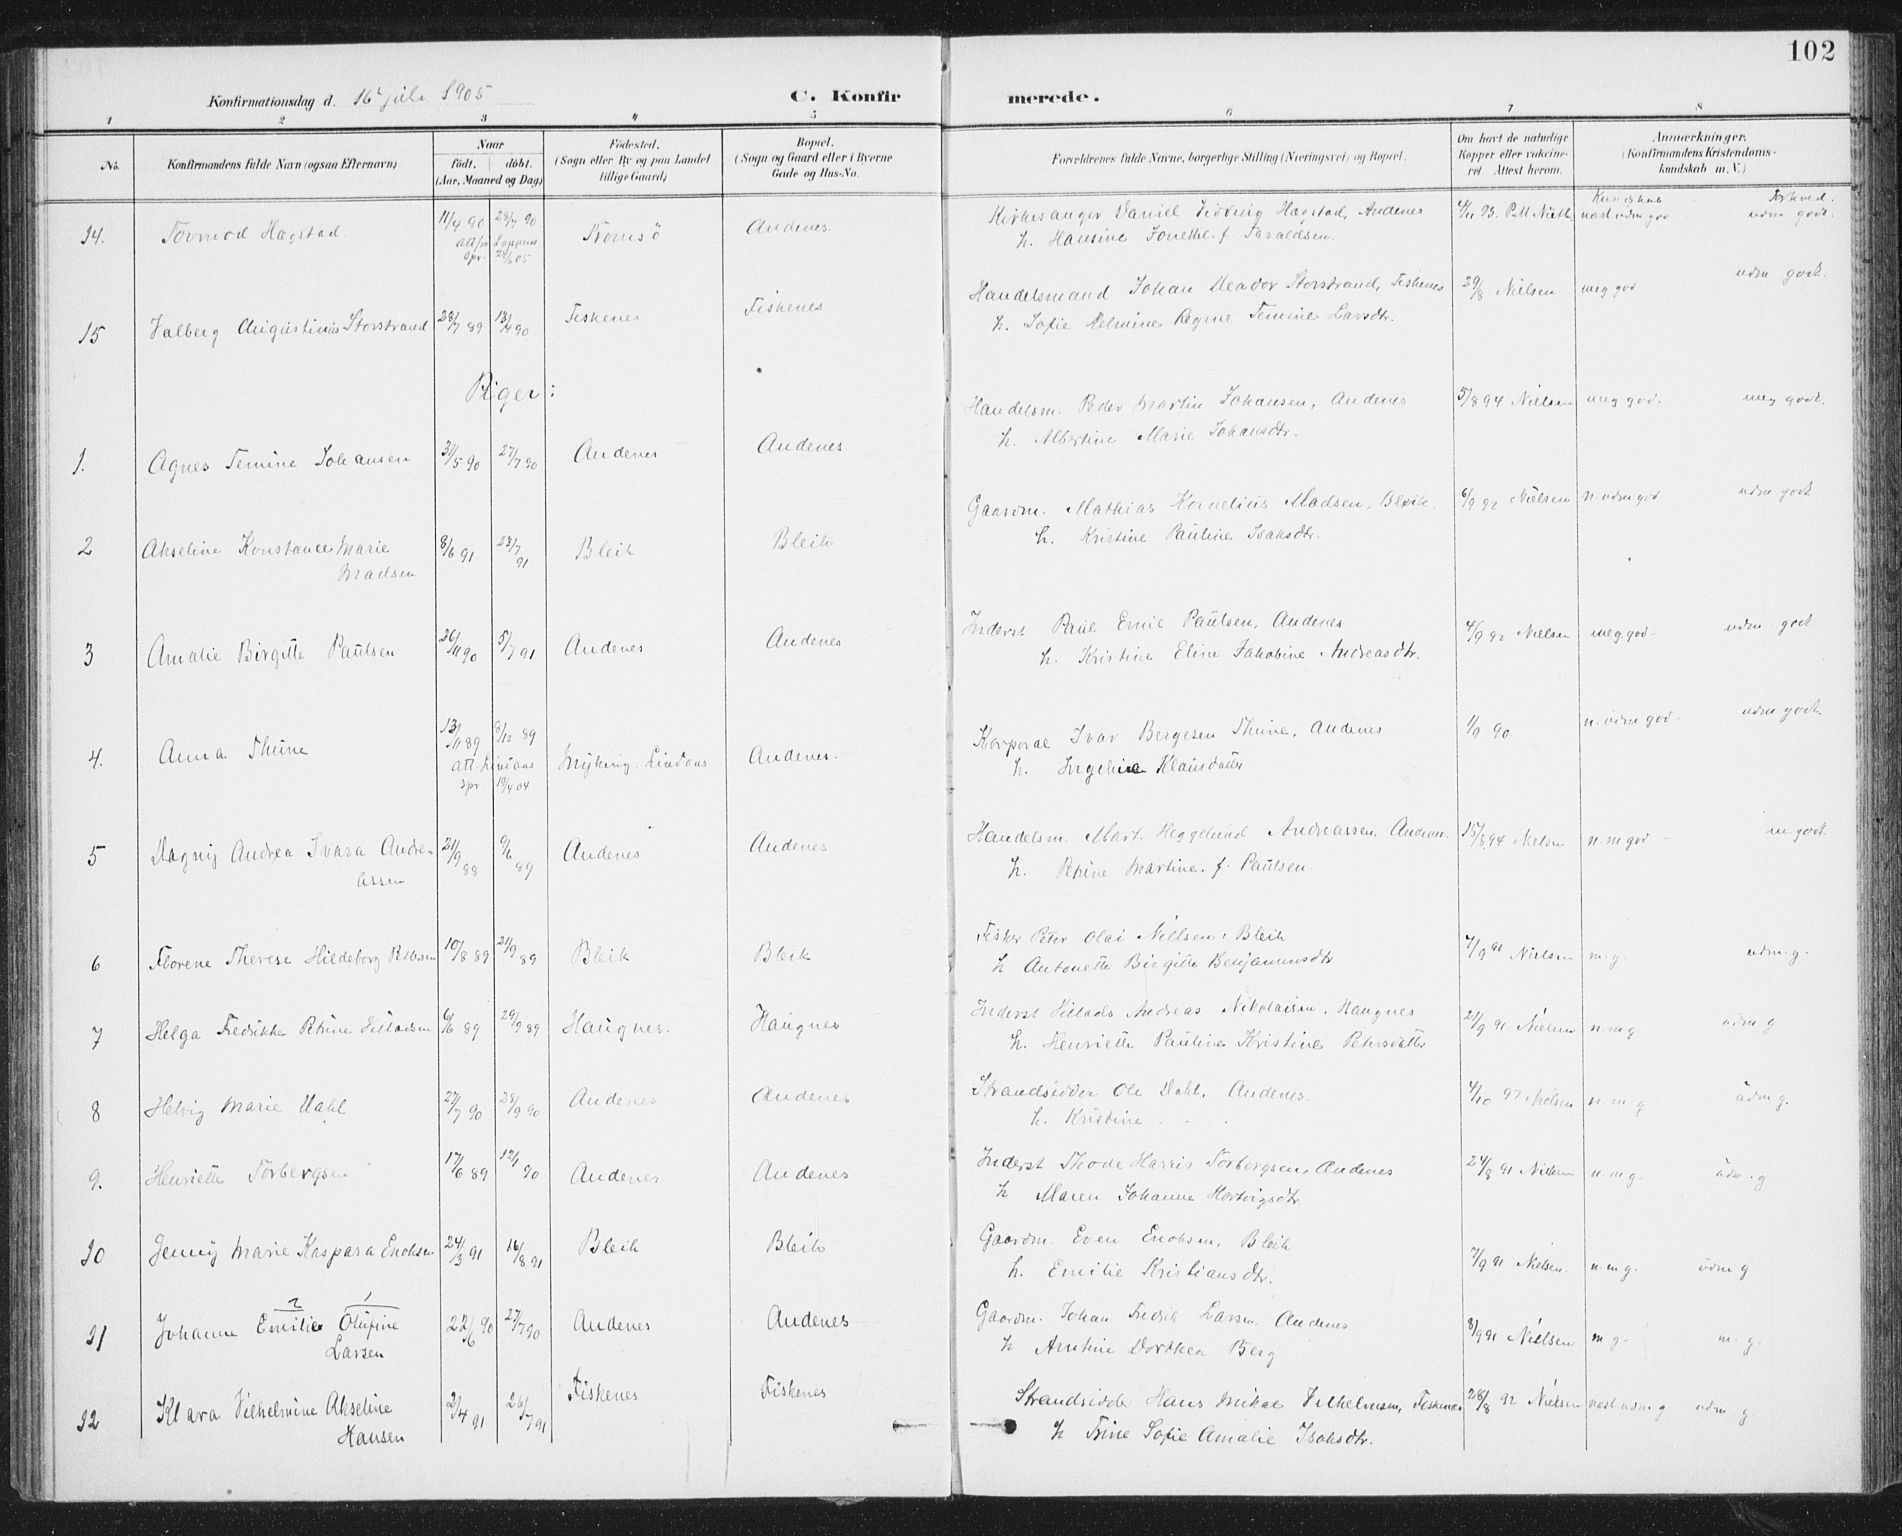 102
Konfirmationsdag d. 16 juli 1905 C. Konfirmerede.
1 2 3 4 5 6 7 8
No. Konfirmandens fulde Navn (ogsaa Efternavn) Naar født. døbt. (Aar, Maaned og Dag) Fødested. (Sogn eller By og paa Landet tillige Gaard) Bopæl. (Sogn og Gaard eller i Byerne Gade og Hus-No. Forældrenes fulde Navne, borgerlige Stilling (Næringsvei) og Bopæl. Om havt de naturlige Kopper eller vakcineret. Attest herom. Anmærkninger. (Konfirmandens Kristendomskundskab m. V.)
Kundskab Forhold.
14. Tormod Hagstad 11/4 90 28/7 90 Tromsö Andenes Kirkesanger Daniel Hagstad, Andenes 93. næst udm god udm godt.
h. Hansine f. Taraldsen.
15 Valberg Augustinus Storstrand 28/7 89 13/4 90 Fiskenes Fiskenes Handelsmand Johan Storstrand, Fiskenes 29/8 Nielsen meg god udm godt.
h. Sofie Helmine Regine Temine Larsdtr.
Piger:
1. Agnes Temine Johansen 31/5 90 27/7 90 Andenes Andenes Handelsm. Peder Martin Johansen, Andenes 5/8 94 Nielsen meg god. meg godt.
h. Albertine Marie Johansdtr.
2 Akseline Konstance Marie Madsen 8/6 91 23/7 91 Bleik Bleik Gaardm. Mathias Kornelius Madsen, Bleik. 6/9 92 Nielsen n. udm god udm godt
h. Kristine Pauline Isaksdtr.
3 Amalie Birgitte Paulsen 26/11 90 5/7 91 Andenes Andenes Inderst Paul Emil Paulsen, Andenes 4/9 92 Nielsen meg. god udm. godt
h. Kristine Eline Jakobine Andreasdtr.
4. Anna Thune 13/11 89 8/12 89 Myking. Lindaas Andenes. Korporal Ivar Bergesen Thune, Andenes 1/9 90 n. udm god udm godt.
att. Lindaas spr 19/4 04 h. Klausdatter
5 Dagny Andrea Ivara Andreassen 21/9 88 9/6 89 Andenes Andenes Handelsm. Mart. Heggelund Andreassen, Andenes. 15/8 94 Nielsen n. m god m. godt
h. Petrine Martine. f. Paulsen.
6 Florene Therese Hildeborg 10/8 89 21/9 89 Bleik Bleik Fisker Peter Olai Nillsen, Bleik 7/9 91 Nielsen m. g. udm. g.
h Antonette Birgitte Benjaminsdtr
7 Helga Fredrikke Petrine 6/6 89 29/9 89 Haugnes. Haugnes Inderst Andreas Nikolaisen, Haugnes 21/9 91 Nielsen n. m g udm. g
h. Henriette Pauline Kristine Petersdatter
8 Helvig Marie Dahl 27/7 90 28/9 90 Andenes Andenes Strandsidder Ole Dahl, Andenes. 4/10 97 Nielsen n. m g udm g.
h. Kristine - - .
9. Henriette Torbergsen 17/6 89 12/1 90 Andenes Andenes Inderst Thode Harris Torbergsen, Andenes 24/8 91 Nielsen n. m g. udm. g
h Maren Johanne Hartvigsdtr
10 Jenny Marie Kaspara Enoksen 24/3 91 16/8 91 Bleik Bleik Gaardm. Even Enoksen, Bleik 7/9 91 Nielsen. n. m g. udm g
h. Emilie Kristiansdtr.
11 Johanne Emilie Olufine Larsen 22/6 90 27/7 90 Andenes Andenes Gaardm. Johan Fredrik Larsen, Andenes 8/9 91 Nielsen m g. m. g.
h Arntine Dorthea Berg
12 Klara Vilhelmine Akseline Hansen 2/4 91 26/7 91 Fiskenes Fiskenes Strandsidder Hans Mikal Vilhelmsen, Fiskenes 28/8 92 Nielsen næst udm g udm. g
h Trine Sofie Amalie Isaksdtr.